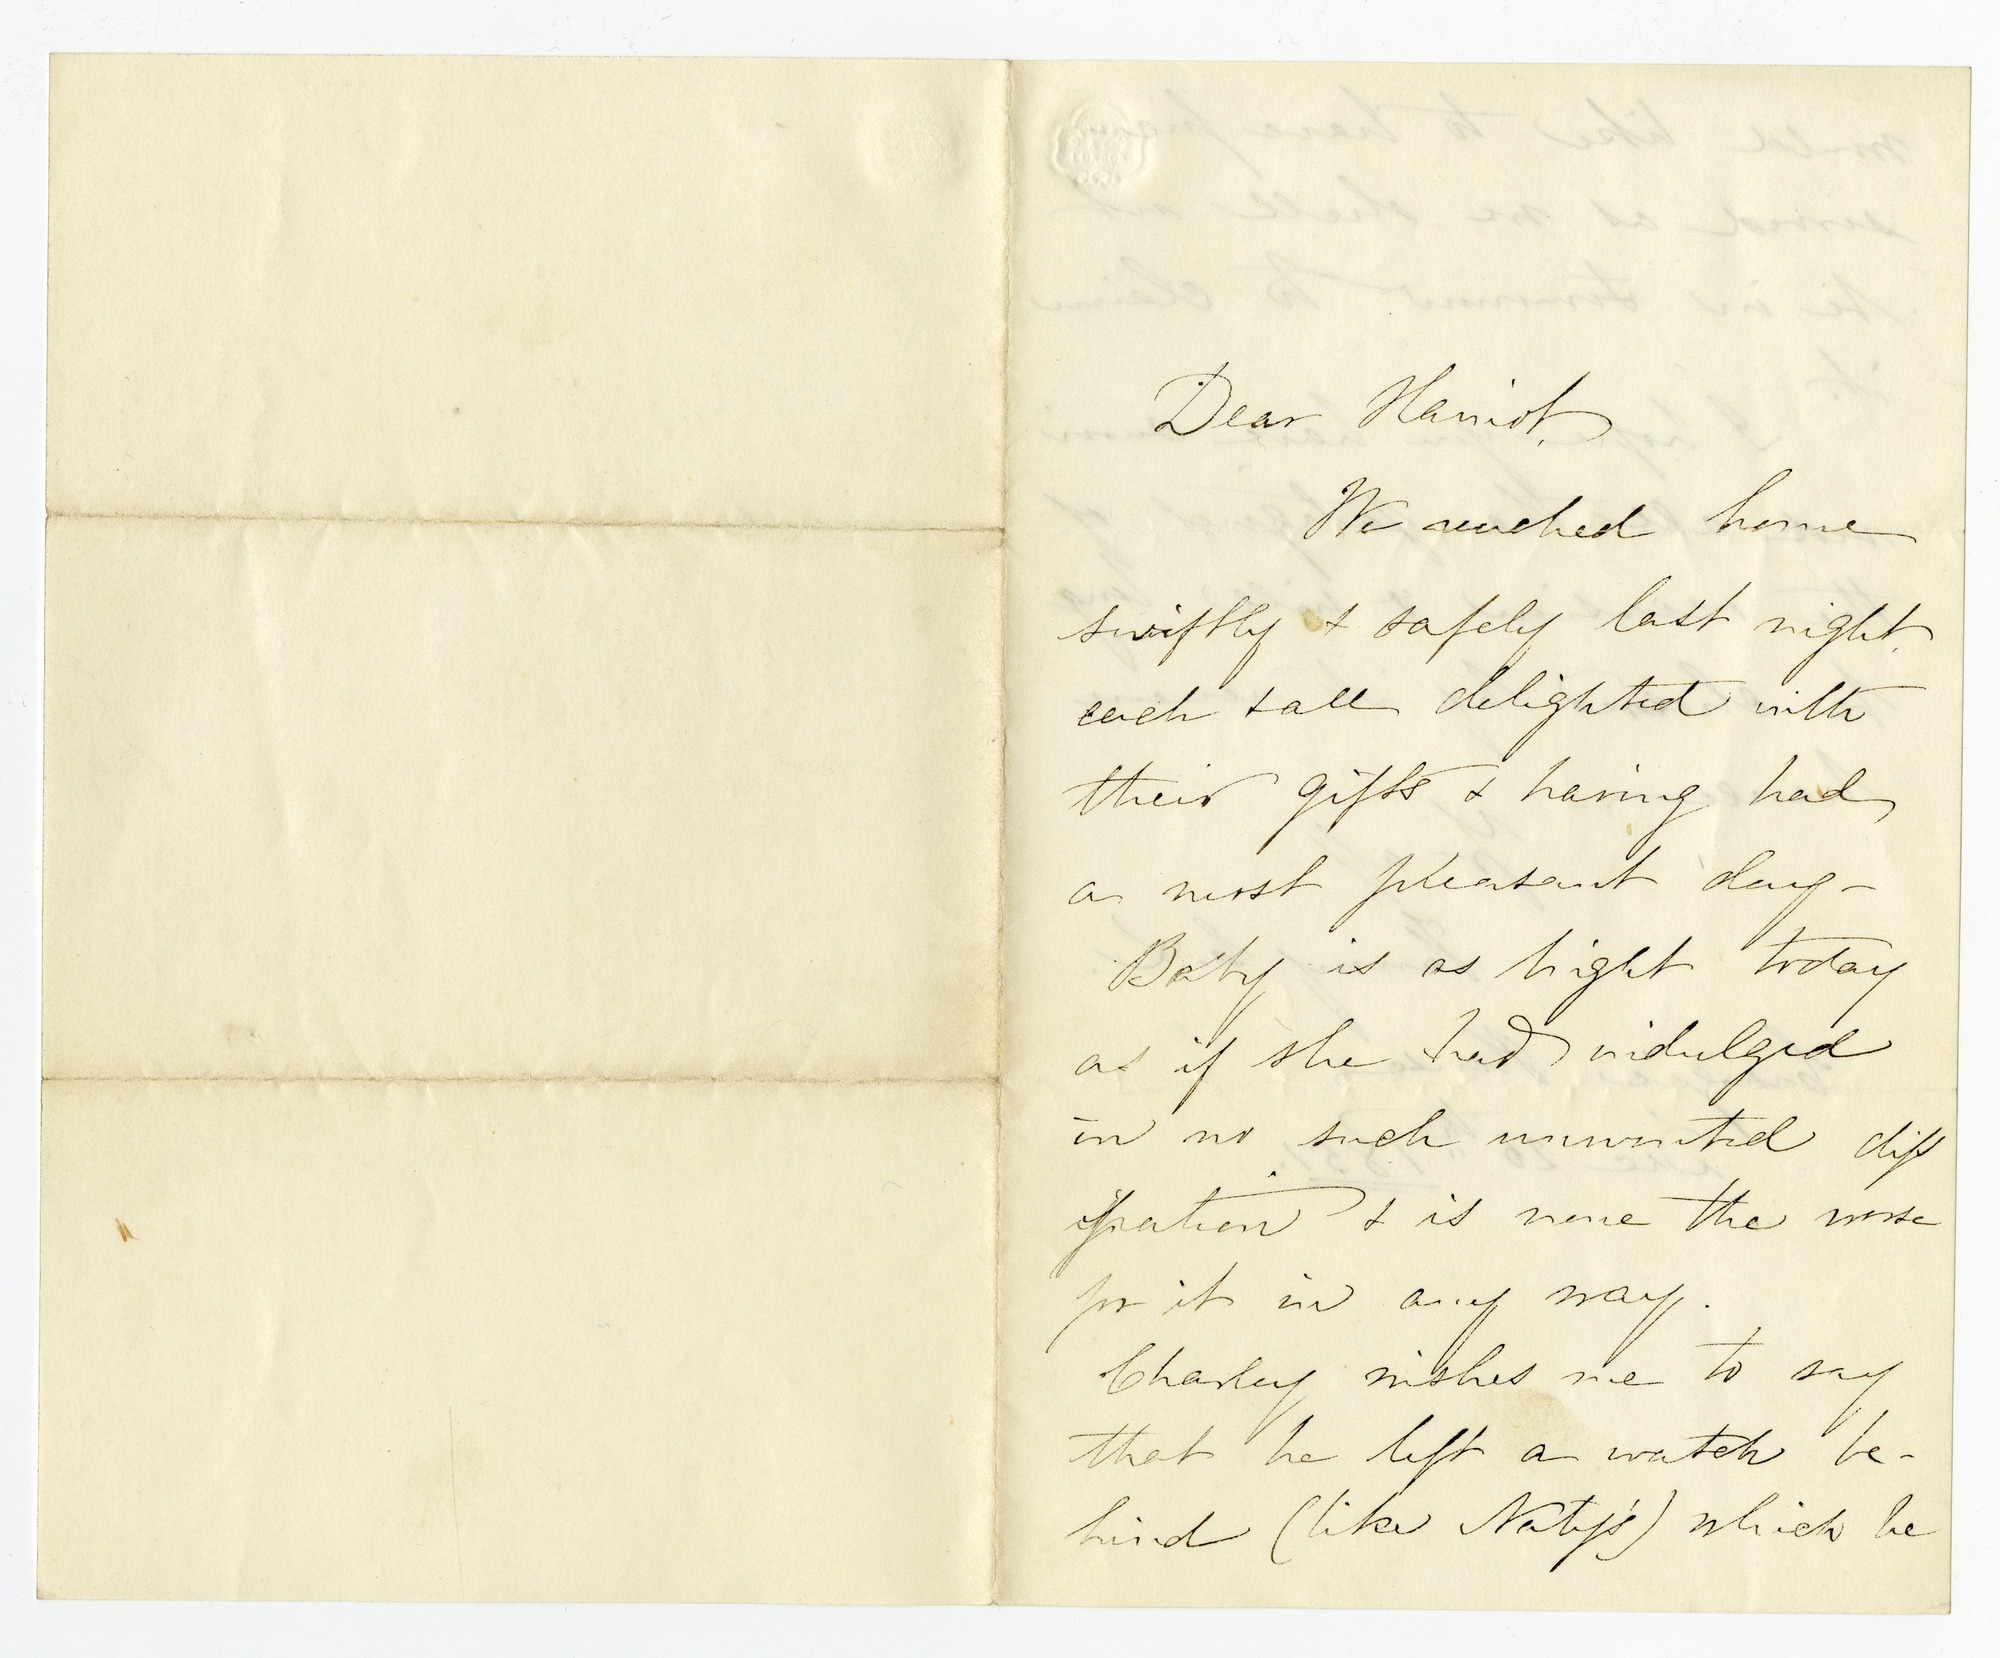 Dear Harriot,
We reached home
swiftly & safely last night,
each & all delighted with
their gifts & having had
a most pleasant day –
Baby is as bright today
as if she had indulged
in no such unwonted diss
ipation & is none the worse
for it in any way.
Charley wishes me to say
that he left a watch be-
hind (like Naty's) which he